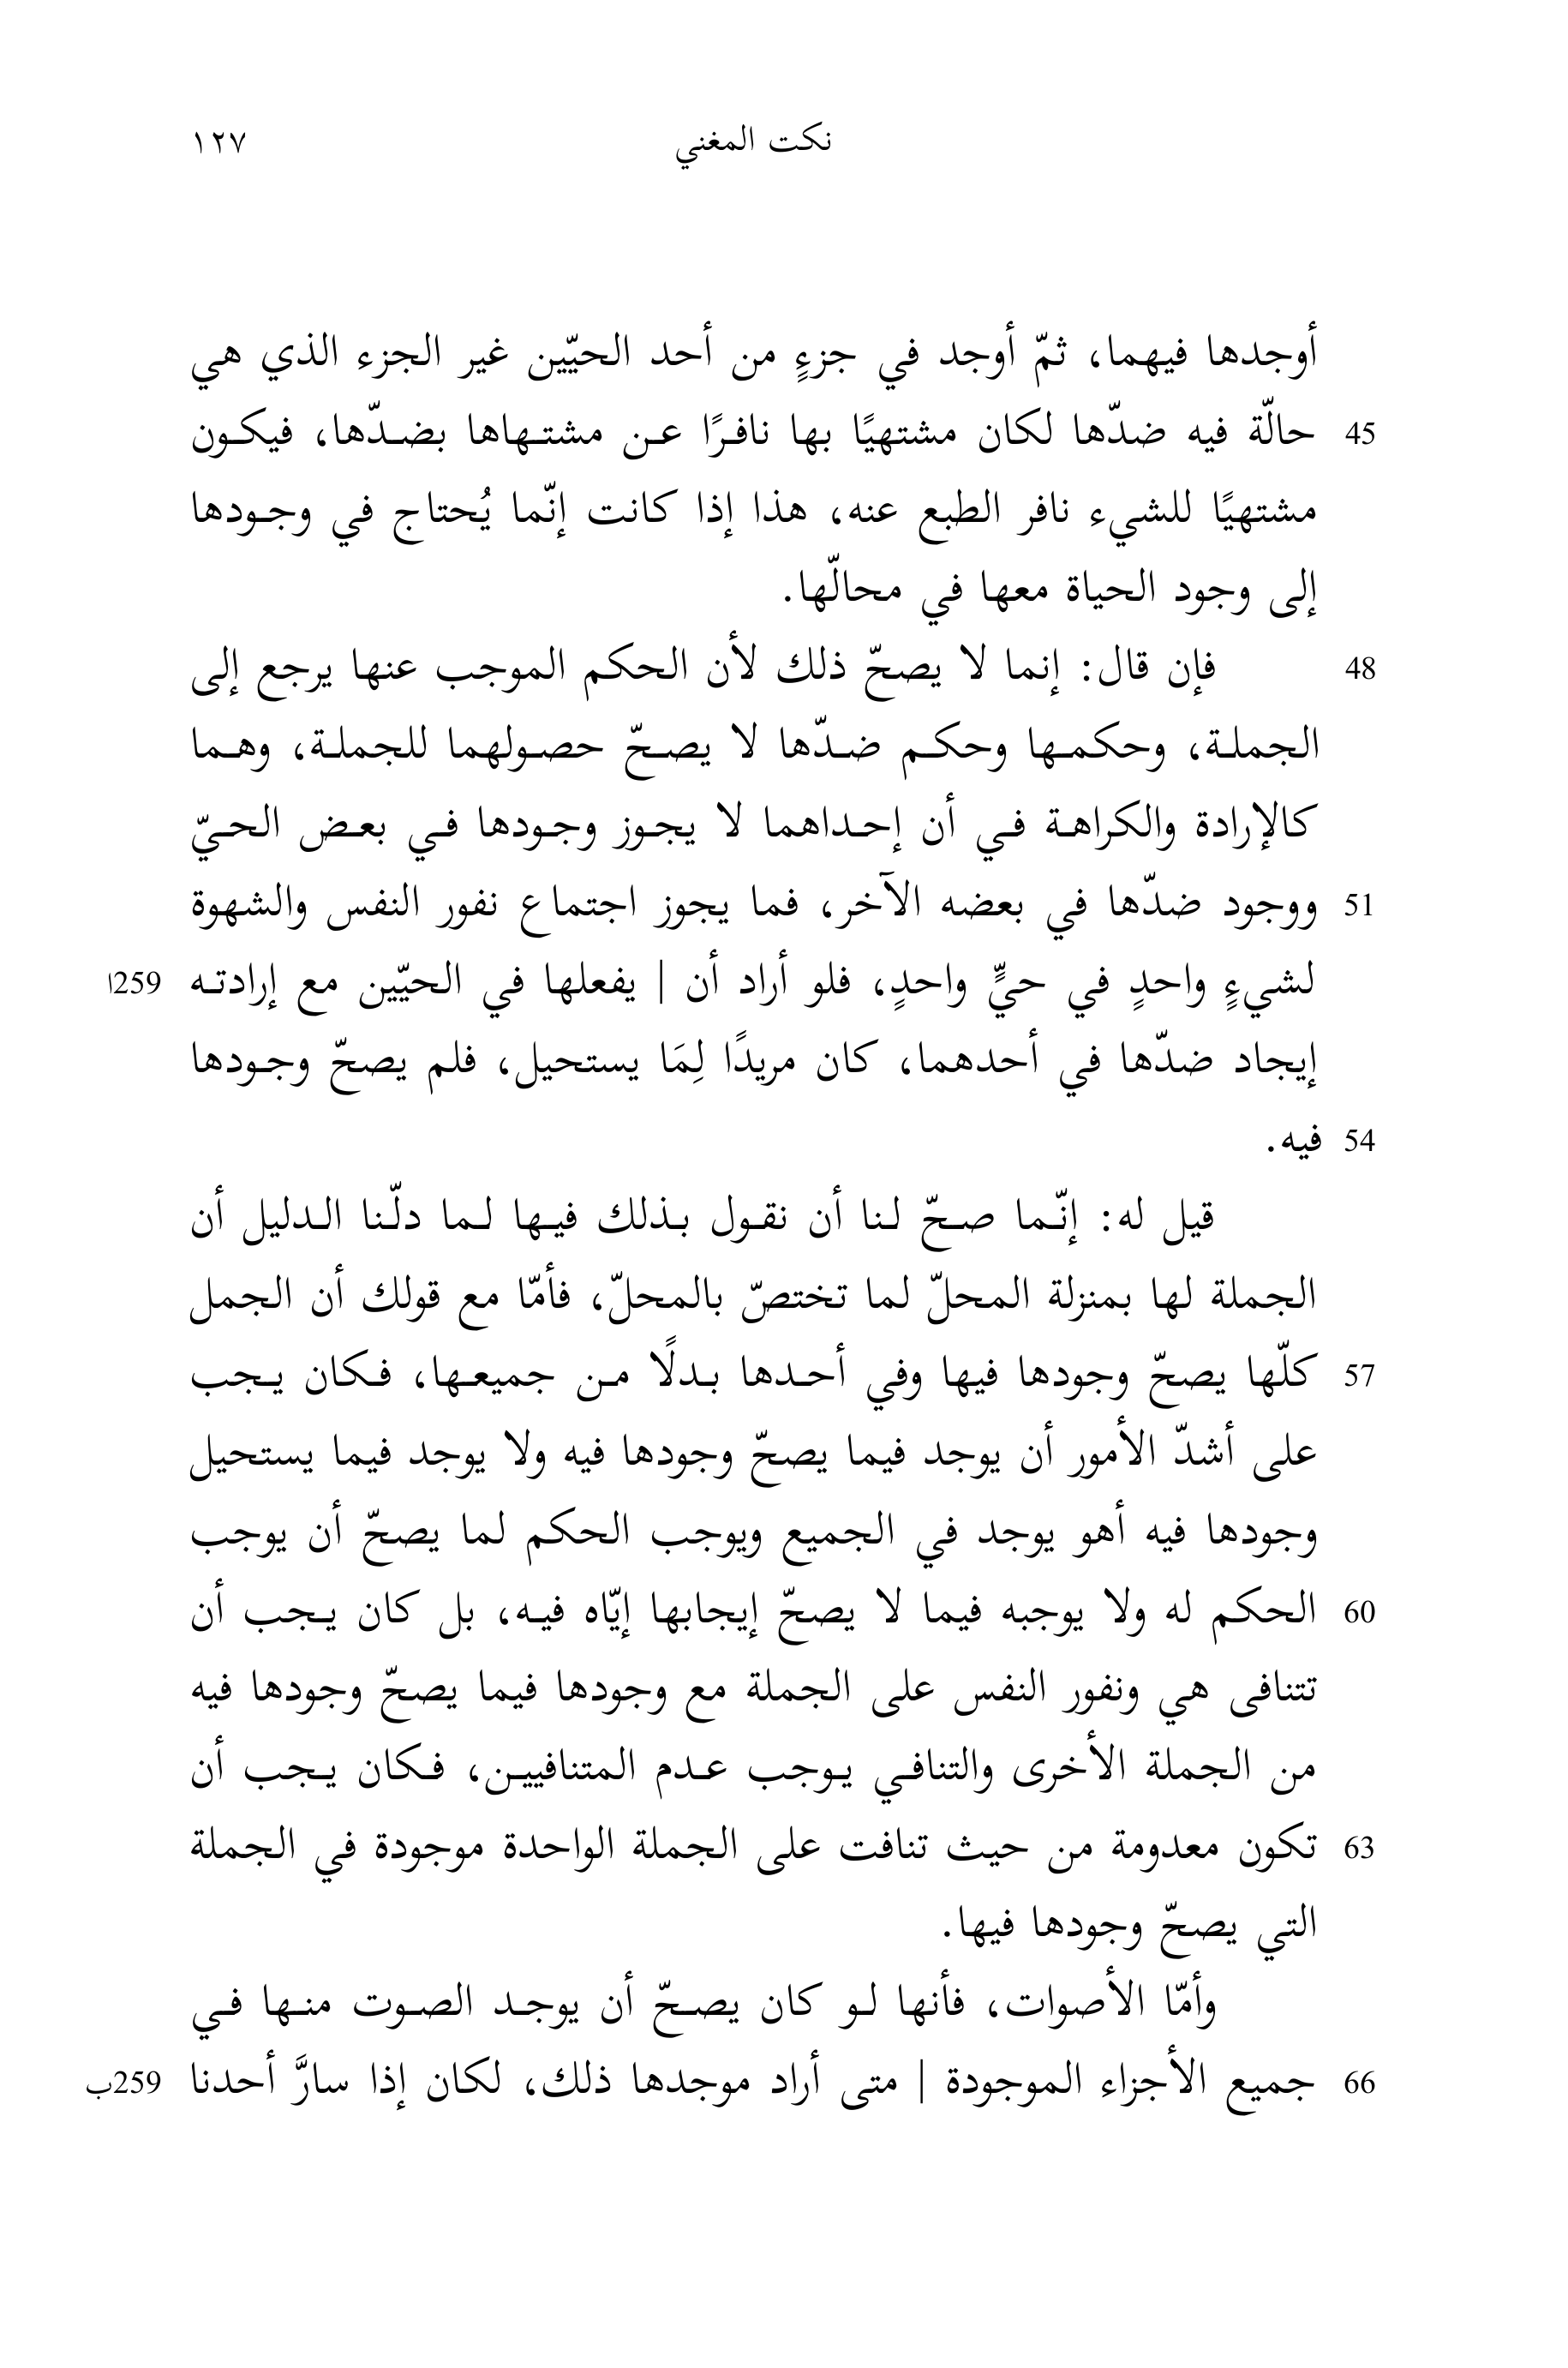 نكت المغني ١٢٧
أوجدها فيهما، ثمّ أوجد في جزءٍ من أحد الحيّين غير الجزء الذي هي
45 حالّة فيه ضدّها لكان مشتهيًا بها نافرًا عن مشتهاها بضدّها، فيكون
مشتهيًا للشيء نافر الطبع عنه، هذا إذا كانت إنّما يُحتاج في وجودها
إلى وجود الحياة معها في محالّها.
48 فإن قال: إنما لا يصحّ ذلك لأن الحكم الموجب عنها يرجع إلى
الجملة، وحكمها وحكم ضدّها لا يصحّ حصولهما للجملة، وهما
كالإرادة والكراهة في أن إحداهما لا يجوز وجودها في بعض الحيّ
51 ووجود ضدّها في بعضه الآخر، فما يجوز اجتماع نفور النفس والشهوة
لشيءٍ واحدٍ في حيٍّ واحدٍ، فلو أراد أن | يفعلها في الحيّين مع إرادته 259ا
إيجاد ضدّها في أحدهما، كان مريدًا لِمَا يستحيل، فلم يصحّ وجودها
54 فيه.
قيل له: إنّما صحّ لنا أن نقول بذلك فيها لما دلّنا الدليل أن
الجملة لها بمنزلة المحلّ لما تختصّ بالمحلّ، فأمّا مع قولك أن الجمل
57 كلّها يصحّ وجودها فيها وفي أحدها بدلًا من جميعها، فكان يجب
على أشدّ الأمور أن يوجد فيما يصحّ وجودها فيه ولا يوجد فيما يستحيل
وجودها فيه أهو يوجد في الجميع ويوجب الحكم لما يصحّ أن يوجب
60 الحكم له ولا يوجبه فيما لا يصحّ إيجابها إيّاه فيه، بل كان يجب أن
تتنافى هي ونفور النفس على الجملة مع وجودها فيما يصحّ وجودها فيه
من الجملة الأخرى والتنافي يوجب عدم المتنافيين، فكان يجب أن
63 تكون معدومة من حيث تنافت على الجملة الواحدة موجودة في الجملة
التي يصحّ وجودها فيها.
وأمّا الأصوات، فأنها لو كان يصحّ أن يوجد الصوت منها في
66 جميع الأجزاء الموجودة | متى أراد موجدها ذلك، لكان إذا سارَّ أحدنا 259ب